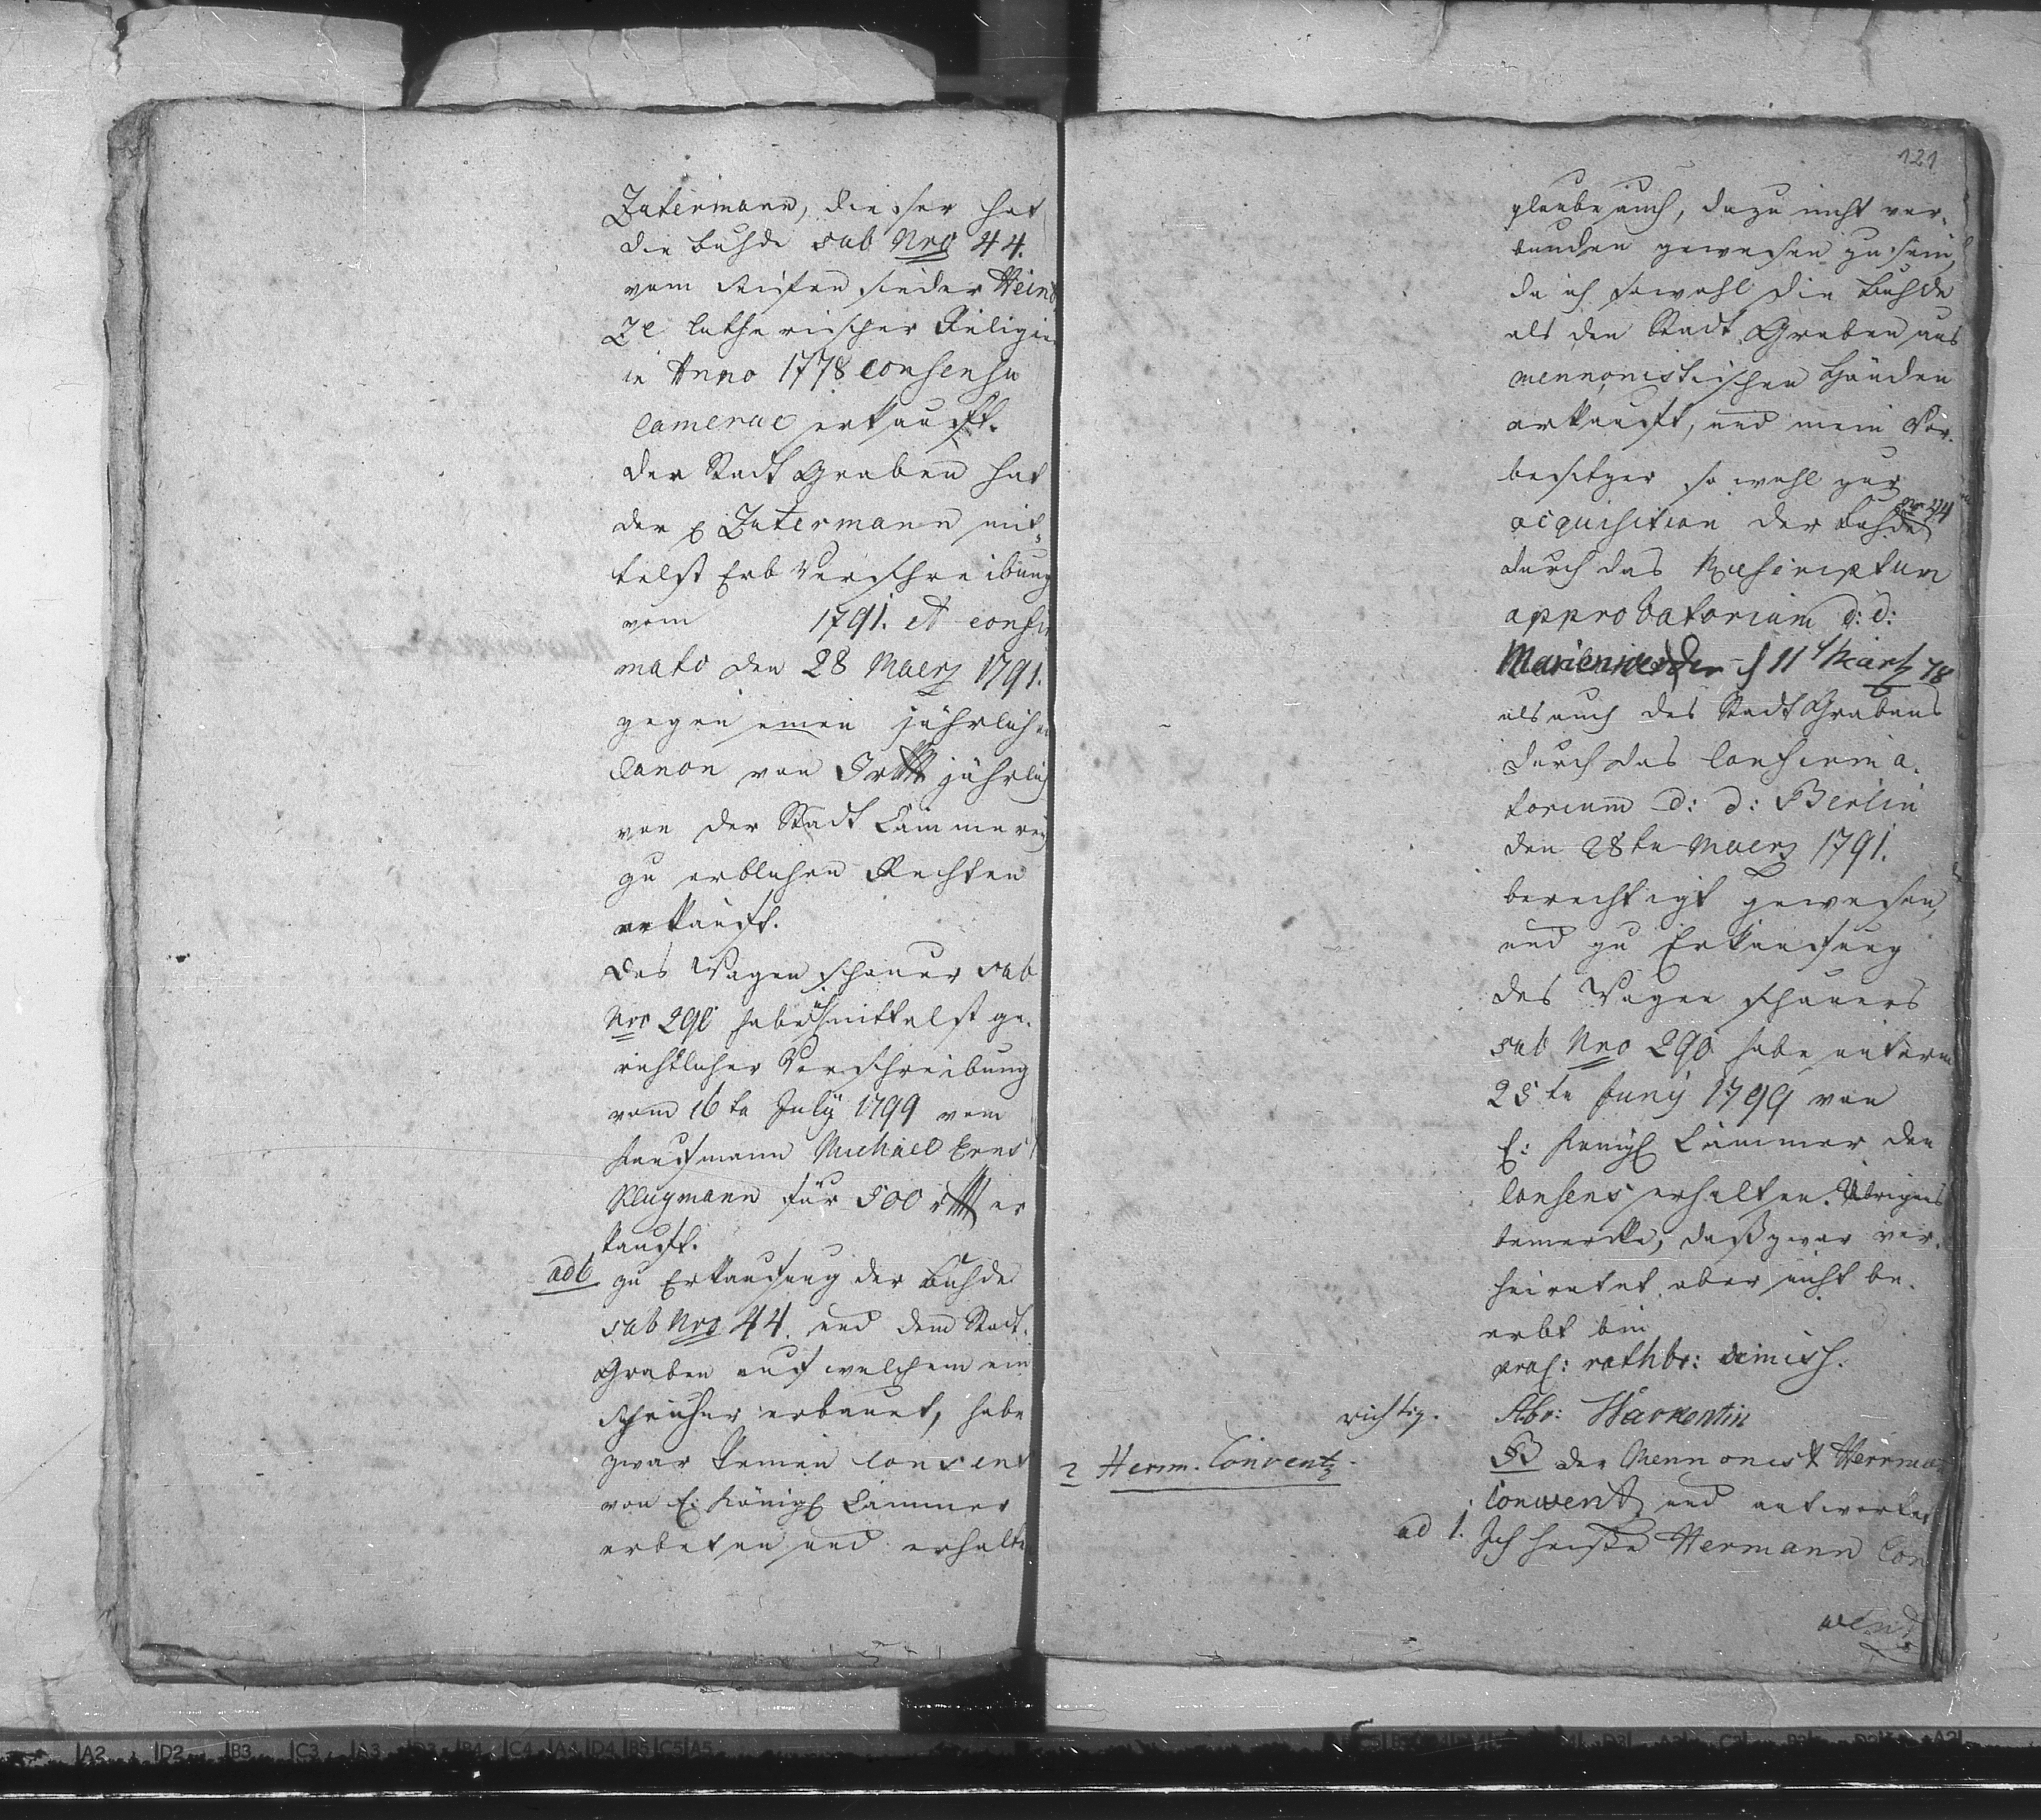 Zatermann, dieser hat
die Buhde sub Nro 44.
vom Seifen sieder Hein
ze lutherischer Religion
in Anno 1778 consensu
camerae erkauft.
Der Stadt Graben hat
der p Zatermann mit-
telst Erb Verschreibung
vom 1791. et confir
mato den 28 Maerz 1791.
gegen einen jährlichen
Canon von 3 rthl jährlich
von der Stadt Cämmerey
zu erblichen Rechten
erkauft.
Das Wagen schauer sub
Nro 290 habe ich mittelst ge-
richtlicher Verschreibung
vom 16te July 1799 vom
Kaufmann Michael Ernst
Klugmann für 500 rthl er
kauft.
ad 6 zu Erkaufung der Buhde
sub Nro 44. und dem Stadt-
Graben auf welchem ein
Speicher erbauet, habe
zwar keinen Consens
von E: Königl Cammer
erbeten und erhalten
121
glaube auch, dazu nicht ver-
bunden gewesen zu sein,
da ich sowohl die Buhde
als den Stadt Graben aus
mennonistischen Händen
erkauft, und mein Vor-
besitzer so wohl zur
acquisition der Buhde nro 44
durch das Rescriptum
approbatorium d: d:
Marienwerder d 11t Märtz 78
als auch des Stadt Grabens
durch das Confirma-
torium d: d: Berlin
den 28te Maerz 1791.
berechtigt gewesen,
und zu Erkaufung
des Wagen schauers
sub Nro 290 habe unterm
25te Juny 1799 von
E: Königl Cammer den
Consens erhalten. Übrigens
bemerke, daß zwar ver-
heiratet aber nicht be-
erbt bin
prael: rathb: dimiss.
richtig.
Abr: Warkentin
2 Herm. Conventz.
B der Mennonist Herrmann
Conwentz und antwortet
ad 1. Ich heiße Hermann Con
wentz